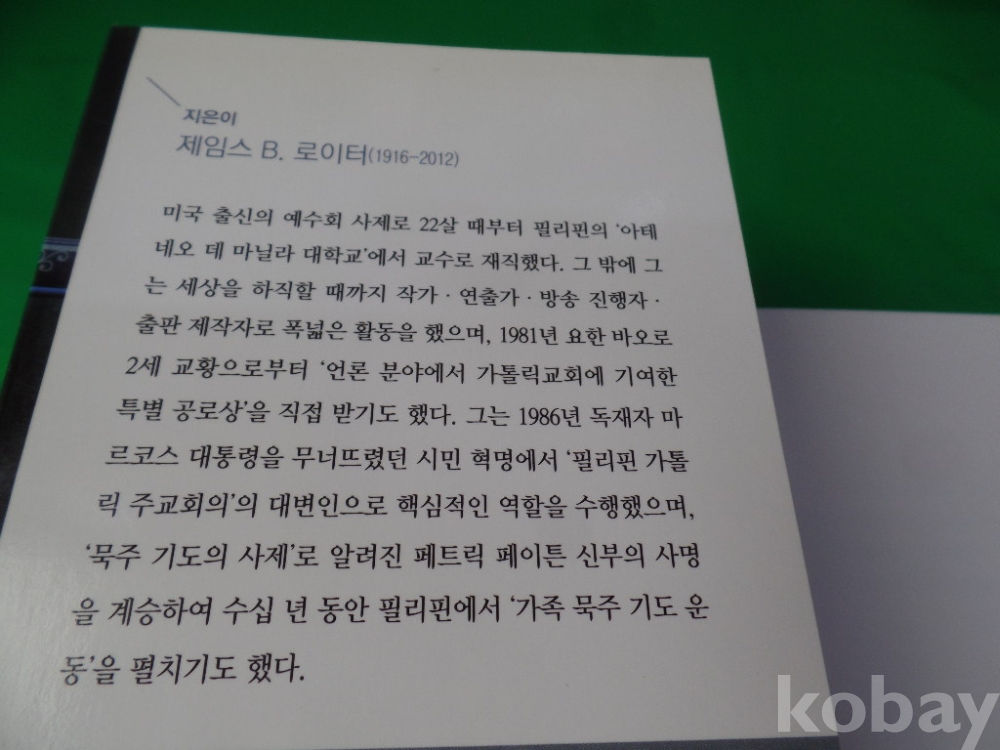 지은이
제임스 B. 로이터(1916-2012)
미국 출신의 예수회 사제로 22살 때부터 필리핀의 '아테
네오 데 마닐라 대학교'에서 교수로 재직했다. 그 밖에 그
는 세상을 하직할 때까지 작가 · 연출가 · 방송 진행자 ·
출판 제작자로 폭넓은 활동을 했으며, 1981년 요한 바오로
2세 교황으로부터 '언론 분야에서 가톨릭교회에 기여한
특별 공로상'을 직접 받기도 했다. 그는 1986년 독재자 마
르코스 대통령을 무너뜨렸던 시민 혁명에서 '필리핀 가톨
릭 주교회의'의 대변인으로 핵심적인 역할을 수행했으며,
'묵주 기도의 사제'로 알려진 페트릭 페이튼 신부의 사명
을 계승하여 수십 년 동안 필리핀에서 '가족 묵주 기도 운
동'을 펼치기도 했다.
kobay